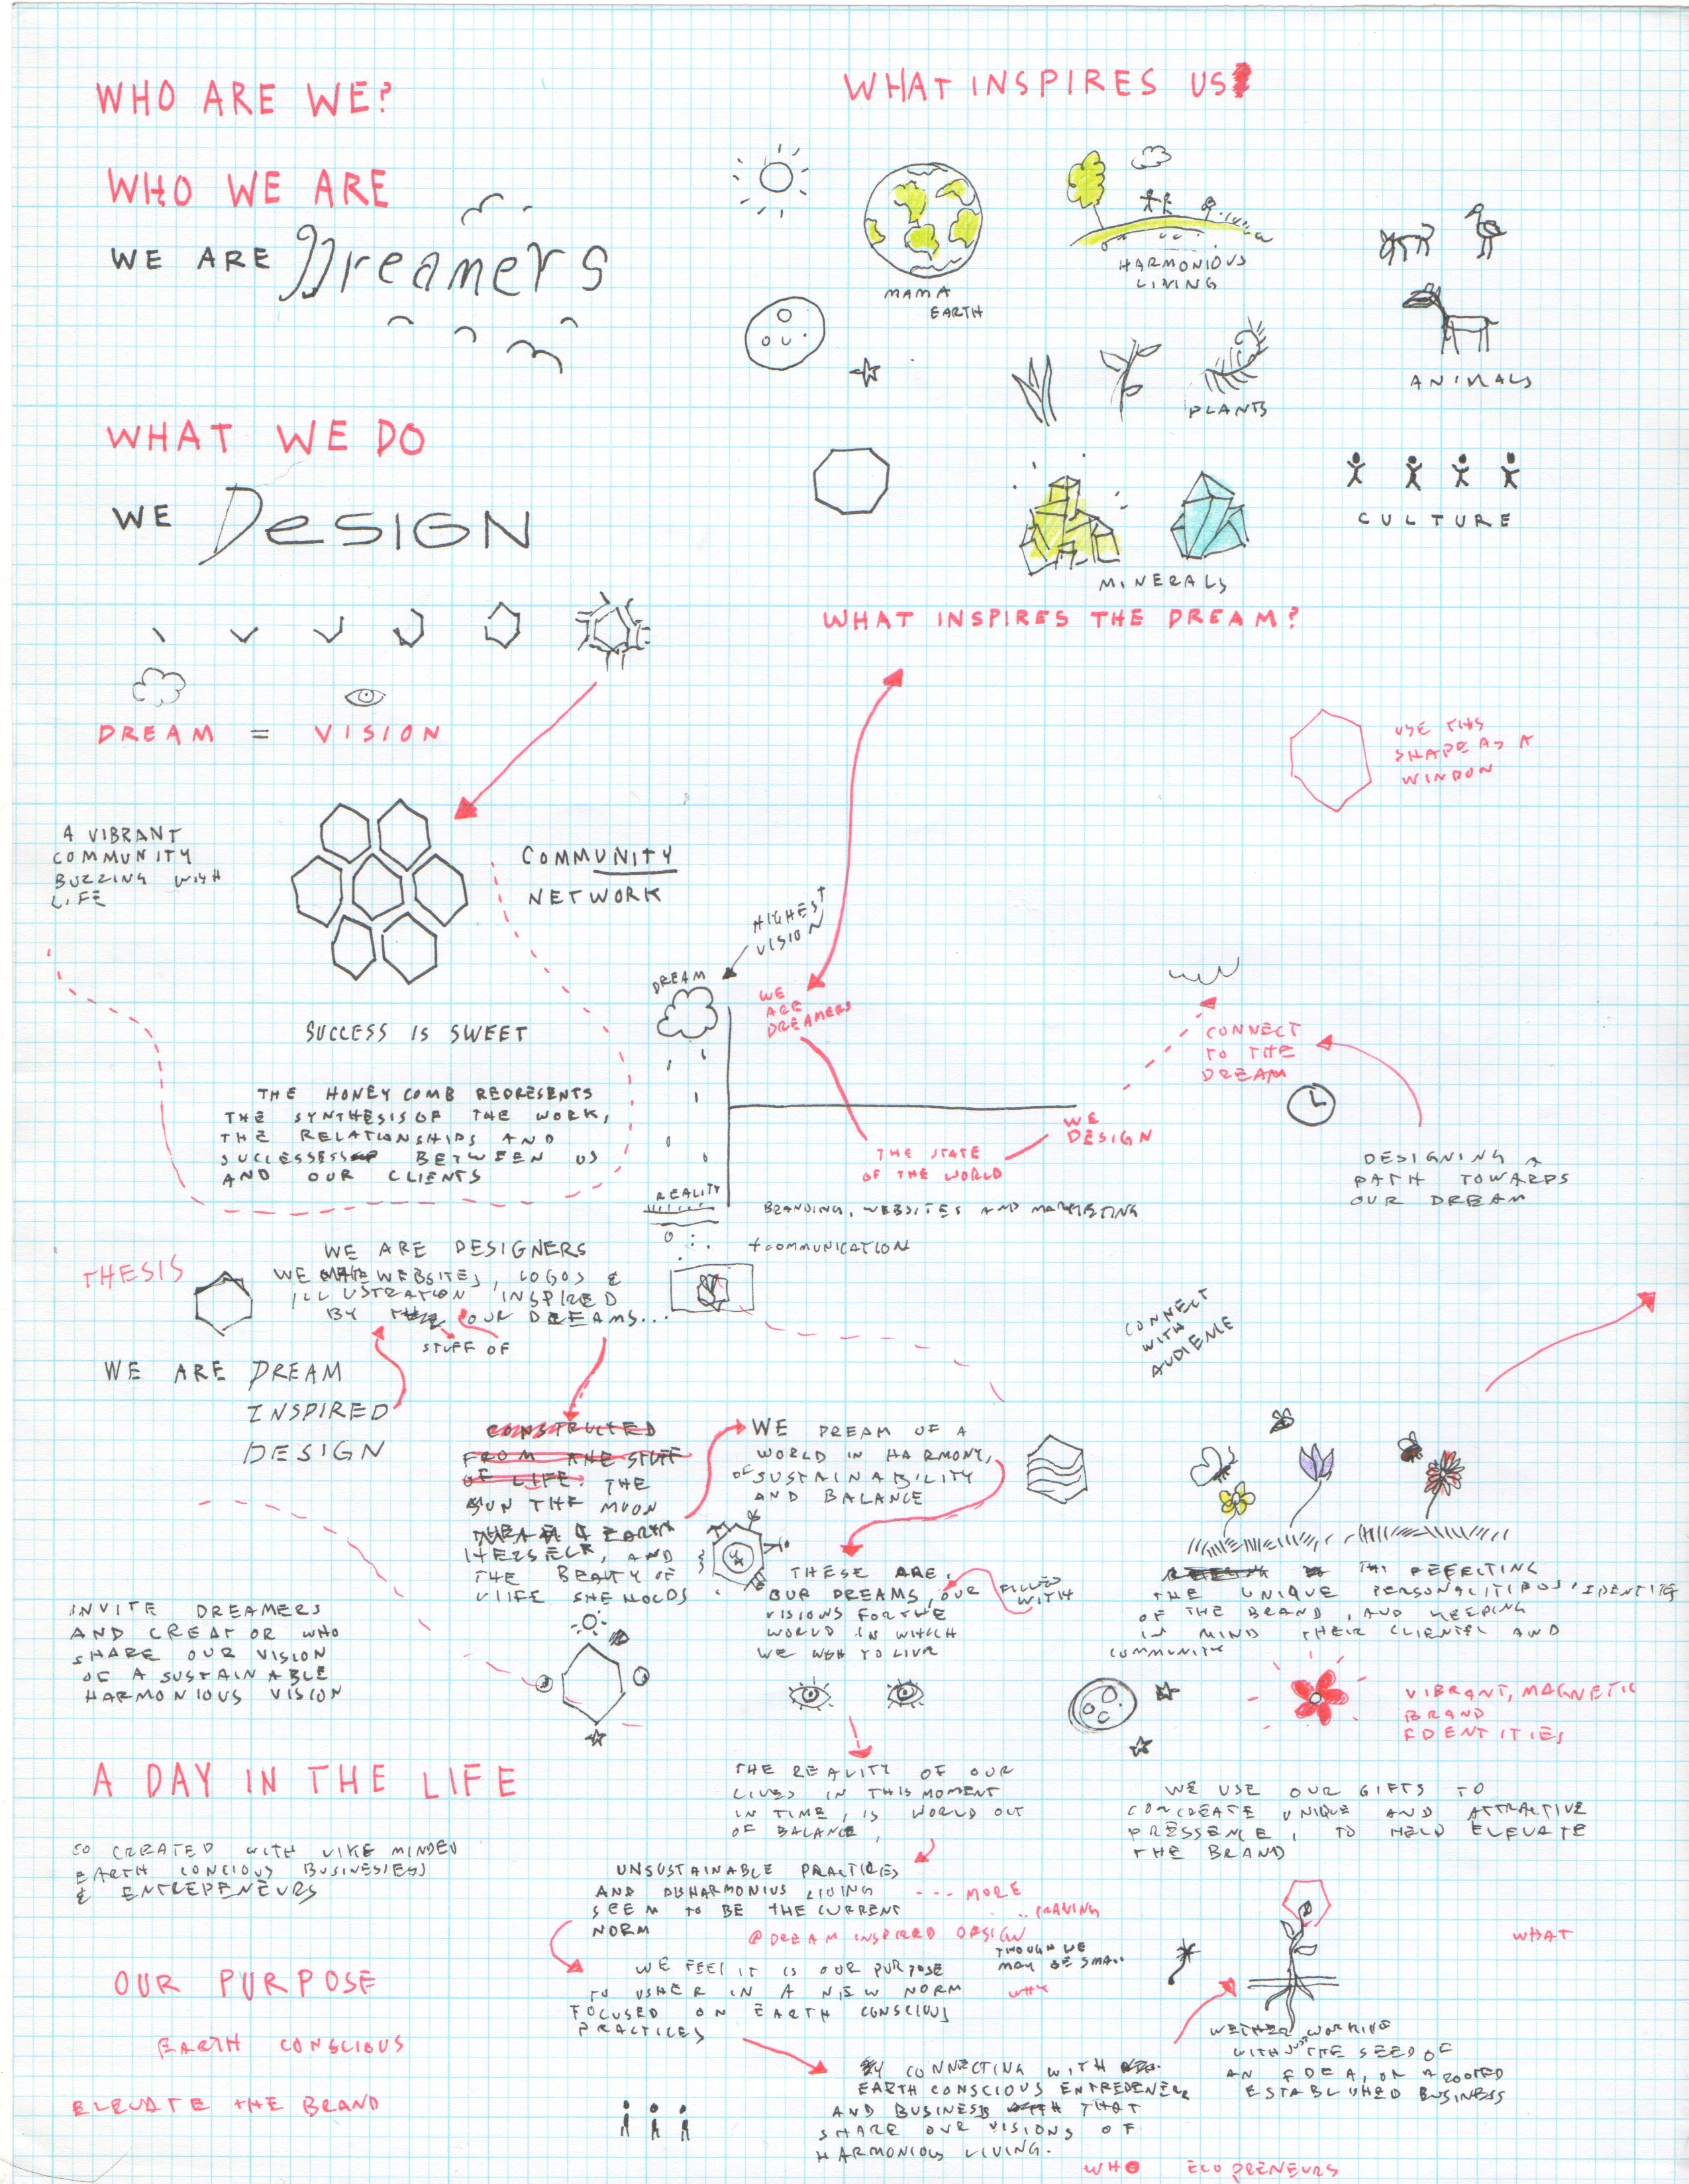 WHO ARE WE?
WHO WE ARE
WE ARE Dreamers
WHAT WE DO
WE DESIGN
DREAM = VISION
WHAT INSPIRES US
MAMA
EARTH
HARMONIOUS
LIVING
ANIMALS
PLANTS
CULTURE
MINERALS
WHAT INSPIRES THE DREAM?
USE THIS
SHAPE AS A
WINDOW
A VIBRANT
COMMUNITY
BUZZING WITH
LIFE
COMMUNITY
NETWORK
SUCCESS IS SWEET
THE HONEY COMB REPRESENTS
THE SYNTHESIS OF THE WORK,
THE RELATIONSHIPS AND
SUCCESSES BETWEEN US
AND OUR CLIENTS
HIGHEST
VISION
DREAM
WE
ARE
DREAMERS
THE STATE
OF THE WORLD
WE
DESIGN
CONNECT
TO THE
DREAM
DESIGNING A
PATH TOWARDS
OUR DREAM
REALITY
BRANDING, WEBSITES AND MARKETING
+ COMMUNICATION
THESIS
WE ARE DESIGNERS
WE MAKE WEBSITES, LOGOS &
ILLUSTRATION INSPIRED
BY THE OUR DREAMS...
STUFF OF
WE ARE DREAM
INSPIRED
DESIGN
CONNECT
WITH
AUDIENCE
CONSTRUCTED
FROM THE STUFF
OF LIFE. THE
SUN THE MOON
EARTH
HERSELF, AND
THE BEAUTY OF
LIFE SHE HOLDS
WE DREAM OF A
WORLD IN HARMONY,
OF SUSTAINABILITY
AND BALANCE
THESE ARE
OUR DREAMS, OUR
VISIONS FOR THE
WORLD IN WHICH
WE WISH TO LIVE
FILLED
WITH
REFLECTING
THE UNIQUE PERSONALITIES, IDENTITY
OF THE BRAND, AND KEEPING
IN MIND THEIR CLIENTEL AND
COMMUNITY
VIBRANT, MAGNETIC
BRAND
EDENTITIES
INVITE DREAMERS
AND CREATOR WHO
SHARE OUR VISION
OF A SUSTAINABLE
HARMONIOUS VISION
A DAY IN THE LIFE
CO CREATED WITH LIKE MINDED
EARTH CONCIOUS BUSINESSES
& ENTREPENEURS
THE REALITY OF OUR
LIVES IN THIS MOMENT
IN TIME, IS WORLD OUT
OF BALANCE,
UNSUSTAINABLE PRACTICES
AND DISHARMONIUS LIVING
SEEM TO BE THE CURRENT
NORM
MORE
CRAVING
@DREAM INSPIRED DESIGN
WE USE OUR GIFTS TO
COCREATE UNIQUE AND ATTRACTIVE
PRESSENCE, TO HELP ELEVATE
THE BRAND
WHAT
OUR PURPOSE
EARTH CONSCIOUS
ELEVATE THE BRAND
WE FEEL IT IS OUR PURPOSE
TO USHER IN A NEW NORM
FOCUSED ON EARTH CONSCIOUS
PRACTICES
THOUGH WE
MAY BE SMALL
WHY
BY CONNECTING WITH
EARTH CONSCIOUS ENTREPENEUR
AND BUSINESS WITH THAT
SHARE OUR VISIONS OF
HARMONIOUS LIVING.
WETHER WORKING
WITH JUST THE SEED OF
AN IDEA, OR A ROOTED
ESTABLISHED BUSINESS
WHO ECOPRENEURS